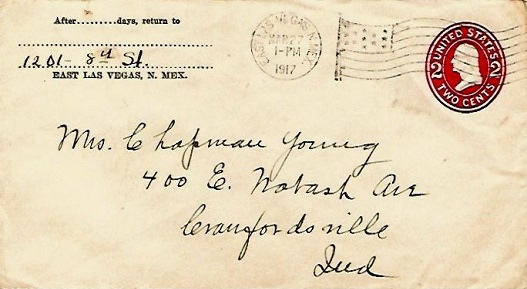 After..........days, return to
1201- 8th St.
EAST LAS VEGAS, N. MEX.
EAST LAS VEGAS, N. MEX.
MAR 7
1-PM
1917
UNITED STATES
2 2
TWO CENTS
Mrs. Chapman Young
400 E. Wabash Ave
Crawfordsville
Ind